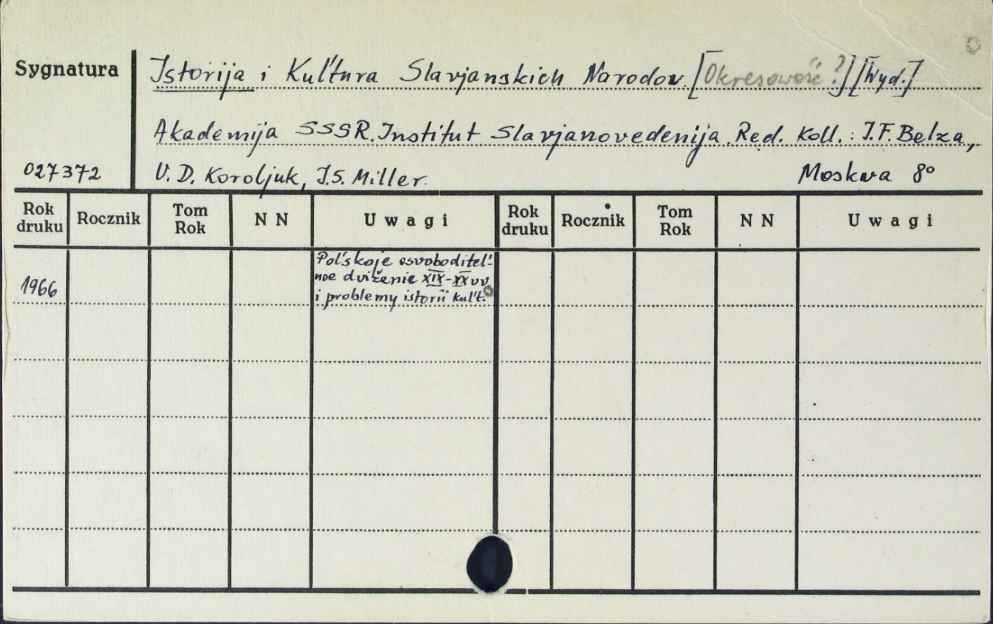 Sygnatura
Istorija i Kul'tura Slavjanskich Narodov. [Okresowość?] [Wyd.]
Akademija SSSR. Institut Slavjanovedenija. Red. Koll.: I.F. Belza,
027372 V. D. Koroljuk, I.S. Miller. Moskva 8°
Rok druku Rocznik Tom Rok N N Uwagi Rok druku Rocznik Tom Rok N N Uwagi
Pol'skoje osvoboditel'-
1966 noe dviženie XIX-XX vv.
i problemy istorii kul't.